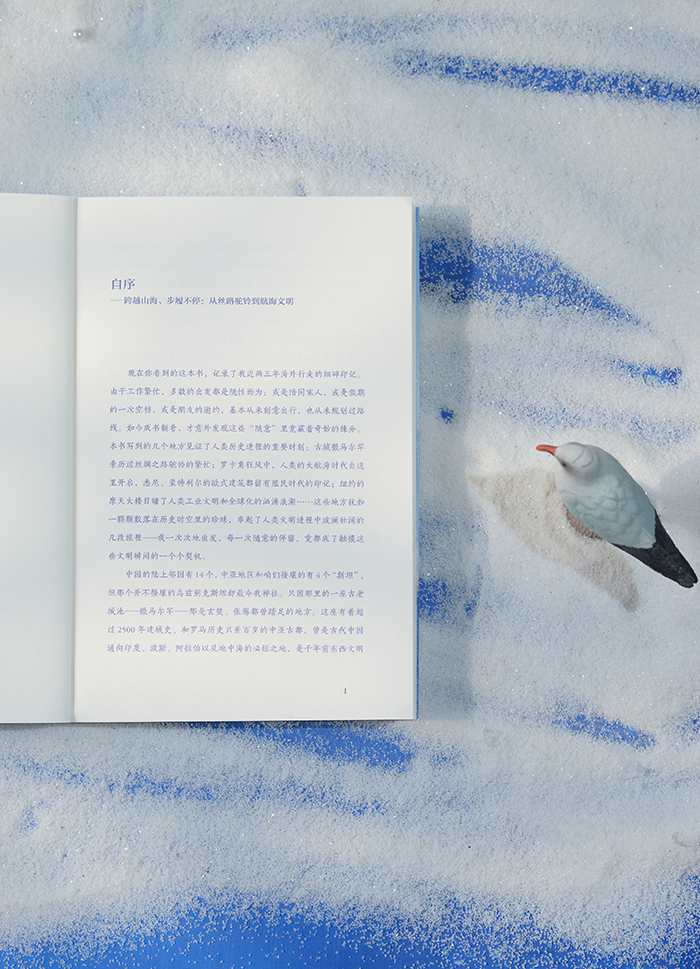 自序
——跨越山海、步履不停：从丝路驼铃到航海文明
现在你看到的这本书，记录了我近两三年海外行走的细碎印记。
由于工作繁忙，多数的出发都是随性而为：或是陪同家人，或是假期
的一次空档，或是朋友的邀约，基本从未刻意出行，也从未规划过路
线。如今成书翻看，才意外发现这些“随意”里竟藏着奇妙的缘分。
本书写到的几个地方见证了人类历史进程的重要时刻：古城撒马尔罕
亲历过丝绸之路驼铃的繁忙；罗卡角狂风中，人类的大航海时代自这
里开启，悉尼、蒙特利尔的欧式建筑都留有殖民时代的印记；纽约的
摩天大楼目睹了人类工业文明和全球化的汹涌浪潮……这些地方犹如
一颗颗散落在历史时空里的珍珠，串起了人类文明进程中波澜壮阔的
几段旅程——我一次次地出发，每一次随意的停留，竟都成了触摸这
些文明瞬间的一个个契机。
中国的陆上邻国有 14 个，中亚地区和咱们接壤的有 4 个“斯坦”，
但那个并不接壤的乌兹别克斯坦却最令我神往。只因那里的一座古老
城池——撒马尔罕——那是玄奘、张骞都曾踏足的地方。这座有着超
过 2500 年建城史、和罗马历史只差百岁的中亚古都，曾是古代中国
通向印度、波斯、阿拉伯以及地中海的必经之地，是千年前东西文明
I